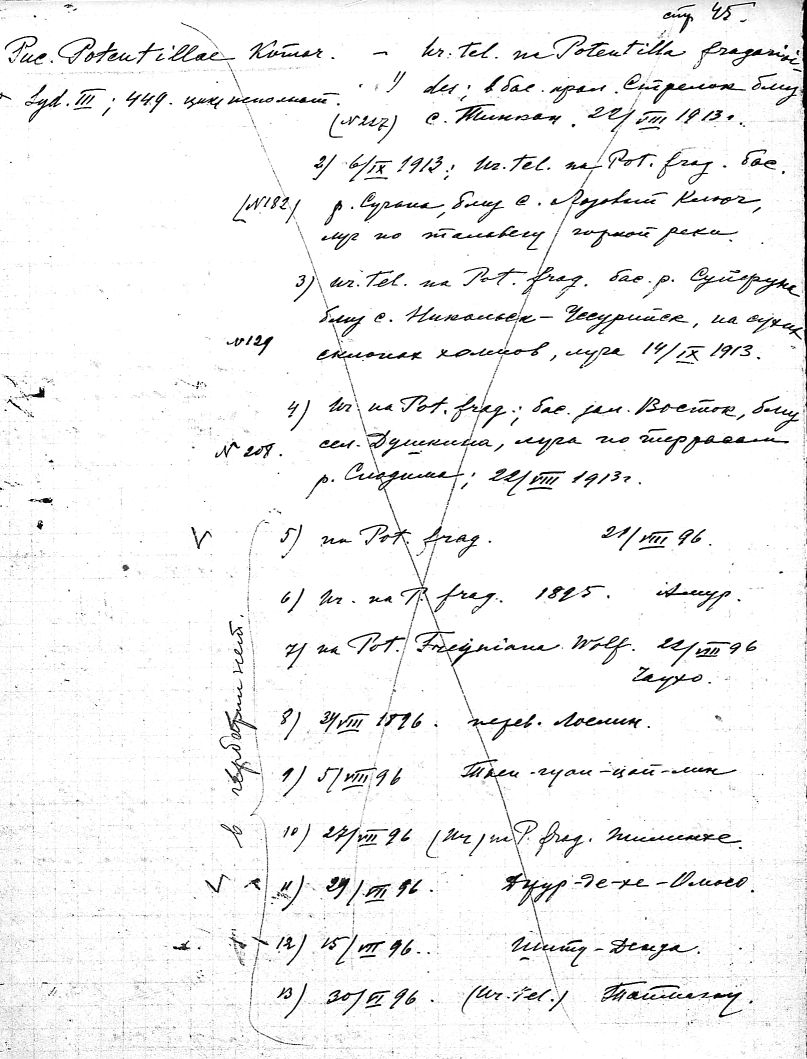 стр 45.
Puc. Potentillae Komar. – Ur. tel. на Potentilla fragarioi-
Syd. III; 449. 1) des; в бас. прол. Стрелок близ
(N 227) с. Тинкан. 22/VIII 1913 г.
2) 6/IX 1913; Ur. tel. на Pot. frag. бас.
(N 182) р. Сучана, близ с. Лозовый Ключ,
луг по тальвегу горной реки.
3) Ur. tel. на Pot. frag. бас. р. Суйфуна
близ с. Никольск-Уссурийск, на сухих
N 129 склонах холмов, луга 14/IX 1913.
4) Ur. на Pot. frag.; бас. зал. Восток, близ
N 208. сел. Душкина, луга по террасам
р. ; 22/VIII 1913 г.
V 5) на Pot. frag. 21/VIII 96.
6) Ur. на P. frag. 1895. Амур.
7) на Pot. Freyniana Wolf. 22/VIII 96
Чаухо.
8) VIII 1896. перев. Лоелин.
9) 5/VIII 96
10) 27/VII 96 (Ur) на P. frag.
11) 29/VII 96. -де-хе-Омосо.
12) 15/VII 96.
13) 30/VI 96. (Ur. tel.)
в гербарии нет.